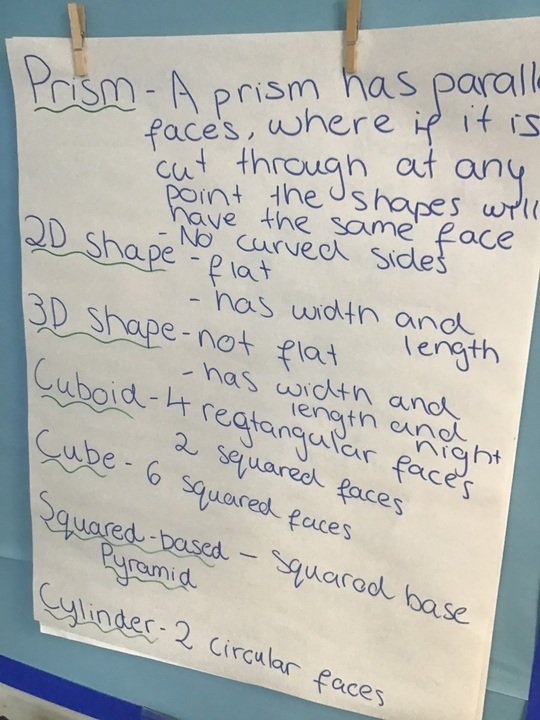 Prism - A prism has parall
faces, where if it is
cut through at any
point the shapes will
have the same face
- No curved sides
2D shape - flat
- has width and
length
3D shape - not flat
- has width and
length and
hight
Cuboid - 4 regtangular faces
2 squared faces
Cube - 6 squared faces
Squared-based - squared base
Pyramid
Cylinder - 2 circular faces